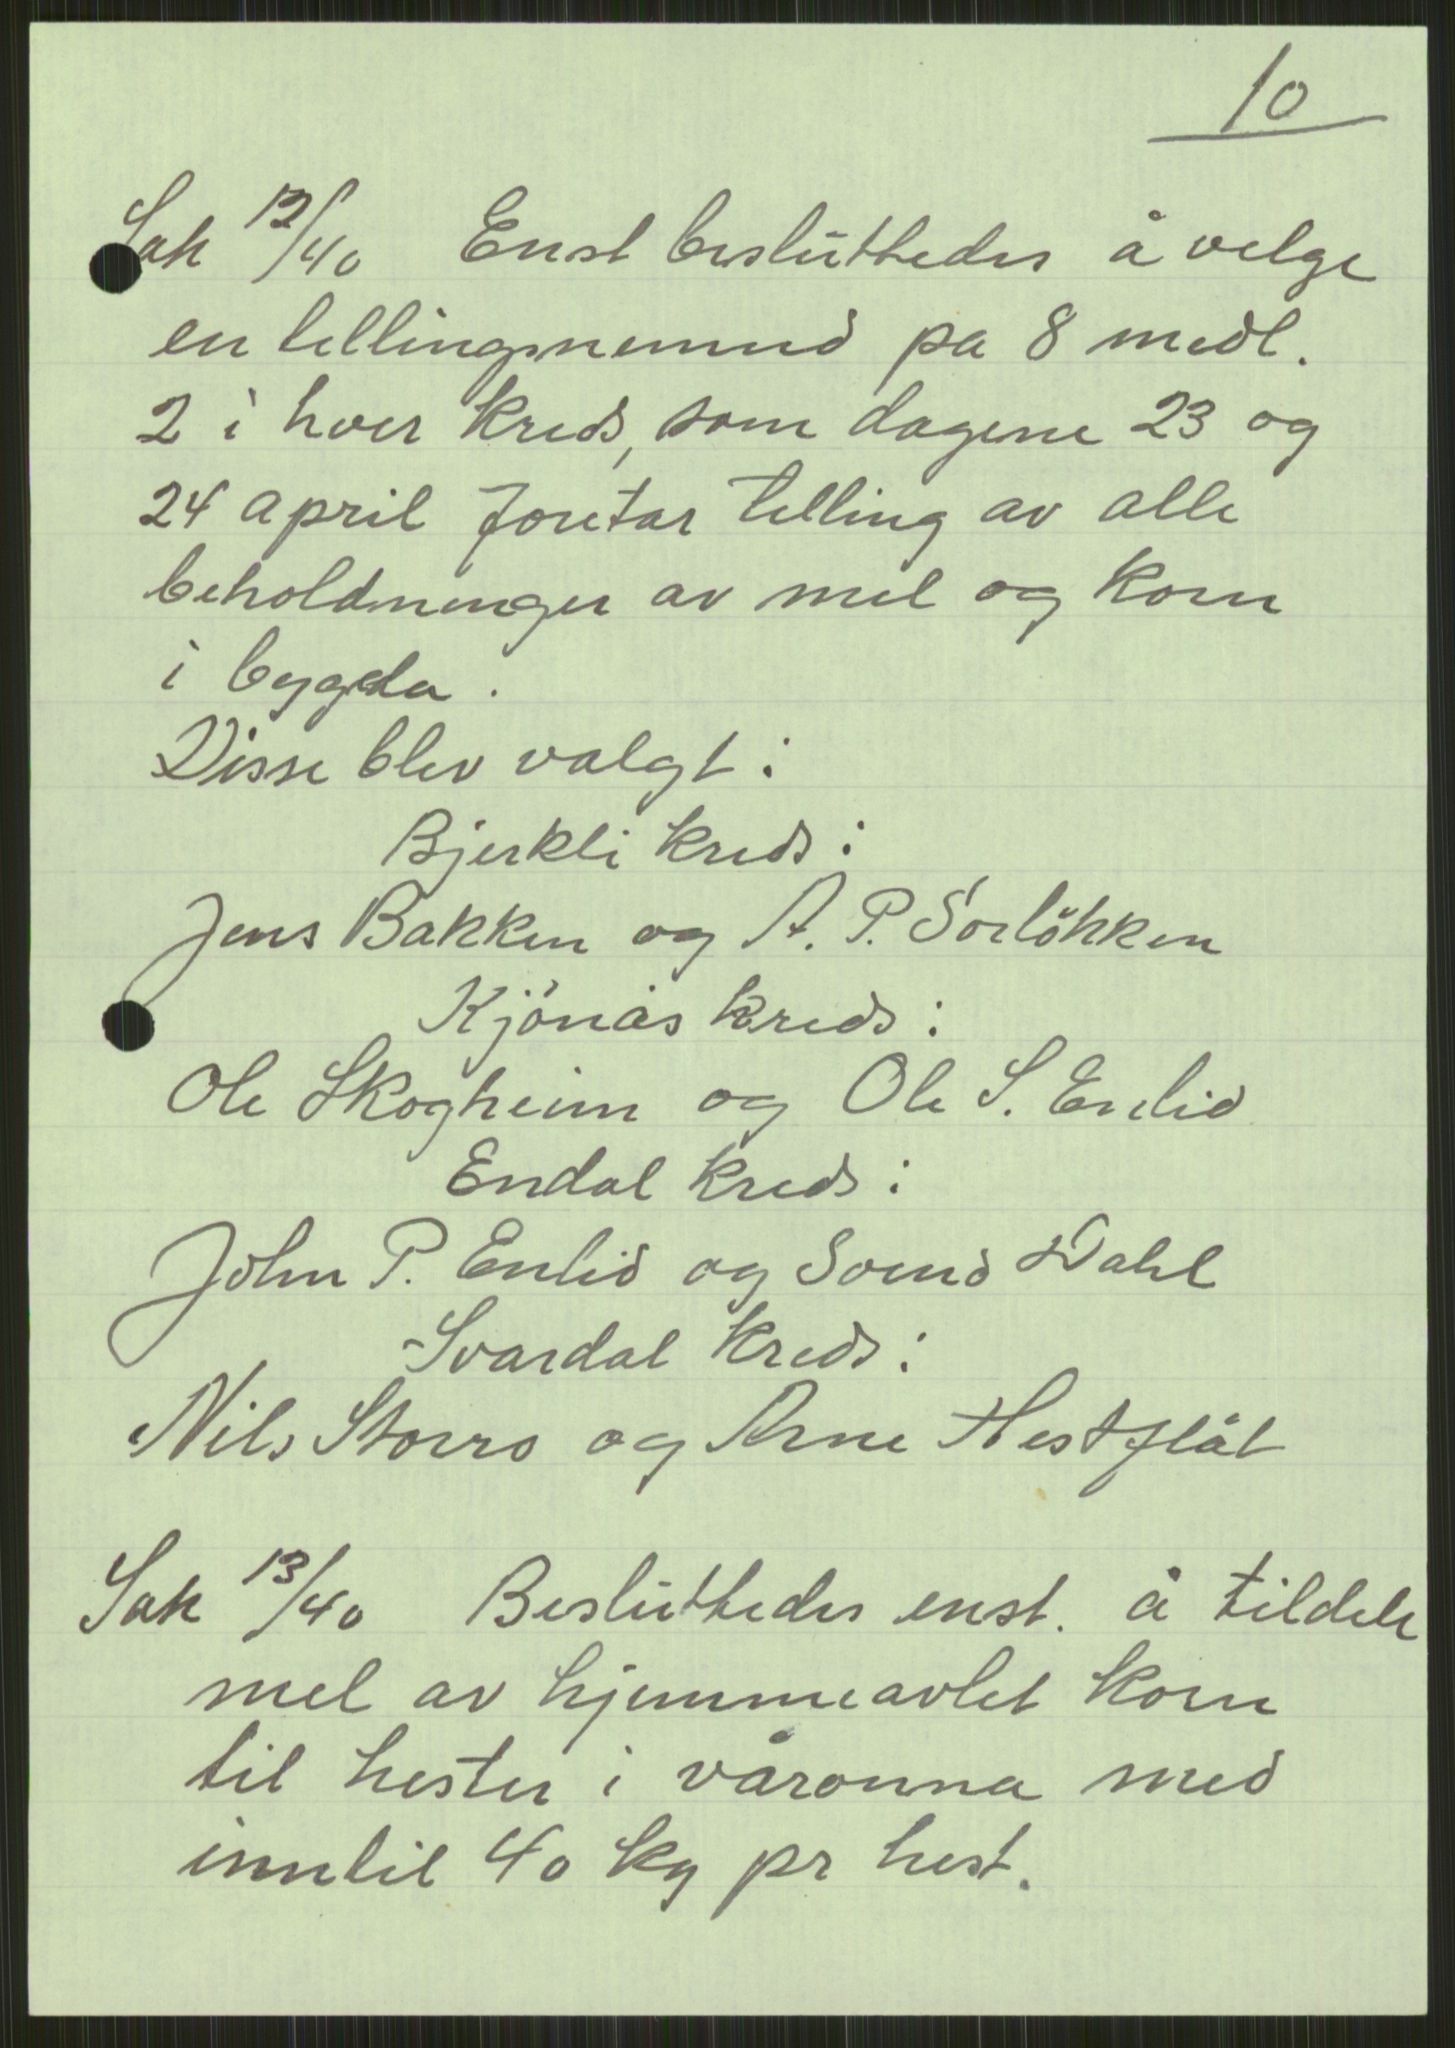 10
Sak 12/40 Enst besluttedes å velge
en tellingsnemnd pa 8 medl.
2 i hver kreds, som dagene 23 og
24 april foretar telling av alle
beholdninger av mel og korn
i bygda.
Disse blev valgt:
Bjerkli kreds:
Jens Bakken og A. P. Sørløkken
Kjönås kreds:
Ole Skogheim og Ole S. Enlid
Endal kreds:
John P. Enlid og Svend Dahl
Svardal kreds:
Nils Storrø og Arne Hestflåt
Sak 13/40 Besluttedes enst. å tildele
mel av hjemmeavlet korn
til hester i våronna med
inntil 40 kg pr hest.